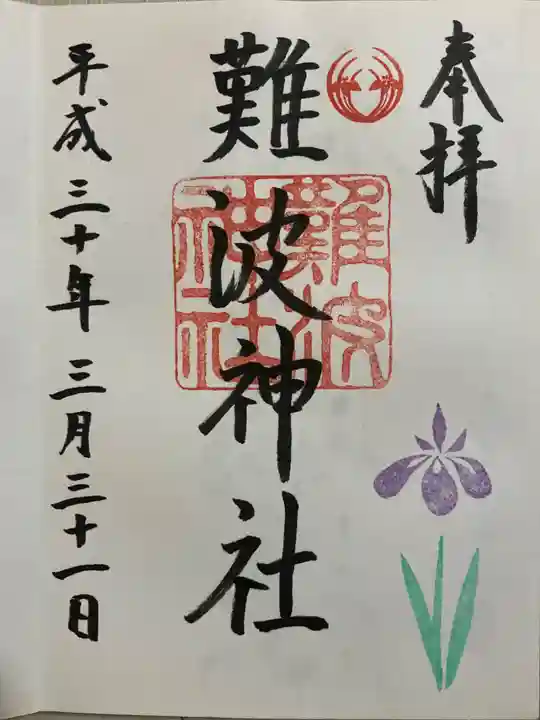 奉拝
難波神社
難波
神社
平成三十年三月三十一日